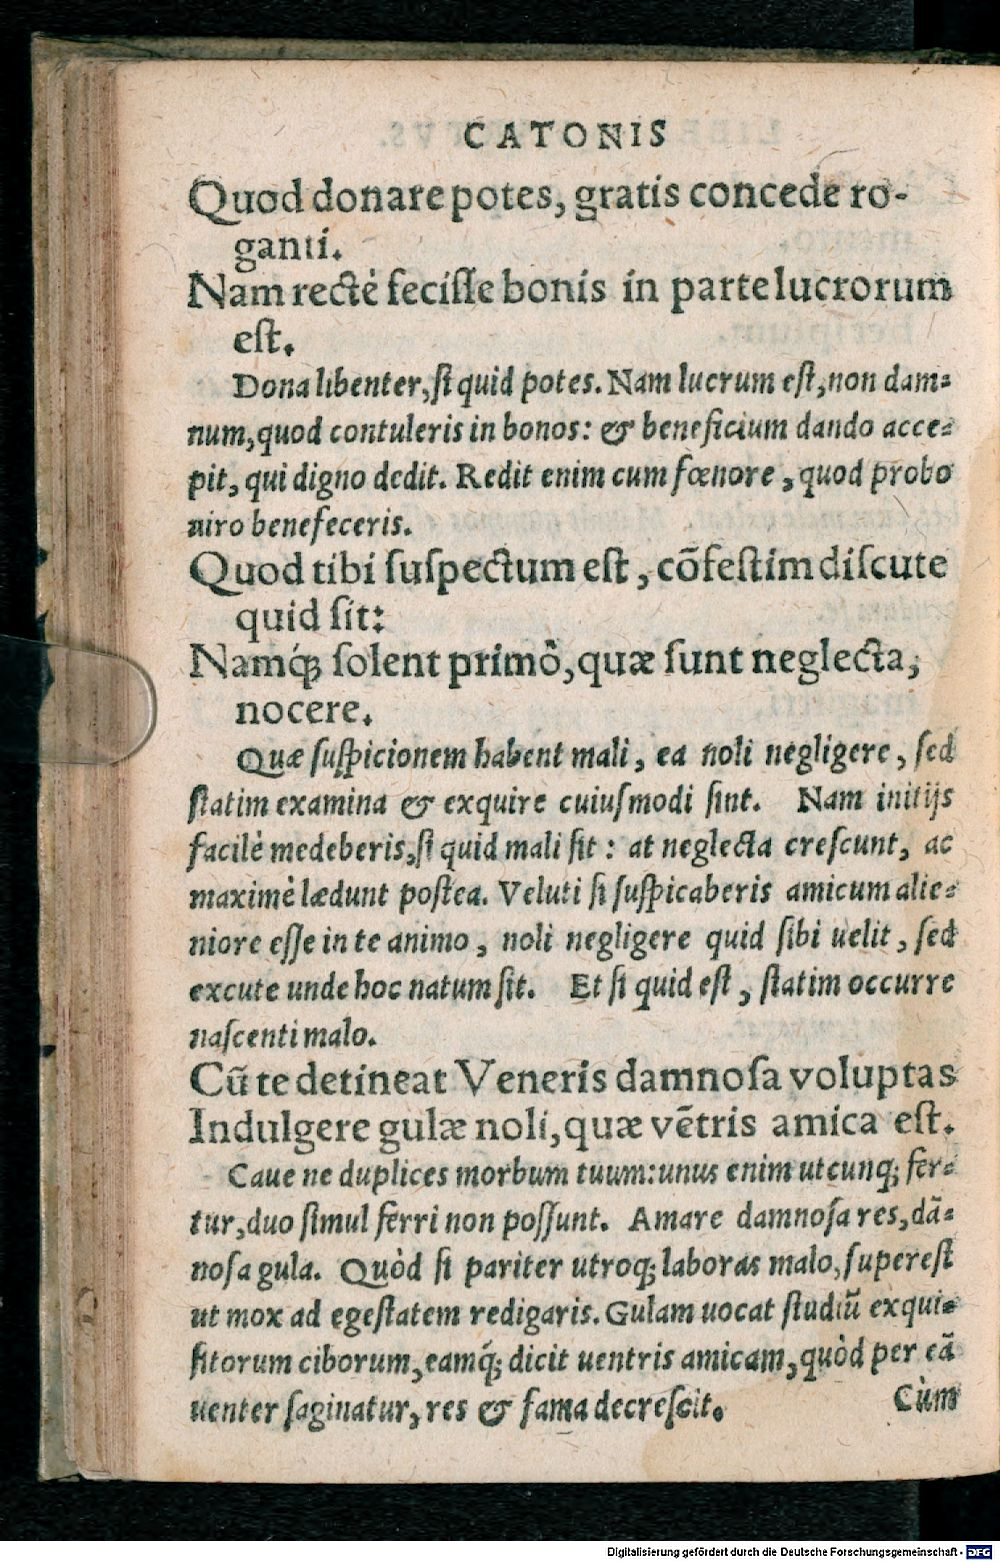 CATONIS
Quod donare potes, gratis concede ro-
ganti.
Nam rectè feciſſe bonis in parte lucrorum
eſt.
Dona libenter, ſi quid potes. Nam lucrum eſt, non dam-
num, quod contuleris in bonos: & beneficium dando acce-
pit, qui digno dedit. Redit enim cum fœnore, quod probo
uiro benefeceris.
Quod tibi ſuſpectum eſt, cõfeſtim diſcute
quid ſit:
Namq́; ſolent primò, quæ ſunt neglecta,
nocere.
Quæ ſuſpicionem habent mali, ea noli negligere, ſed
ſtatim examina & exquire cuiuſmodi ſint. Nam initijs
facilè medeberis, ſi quid mali ſit: at neglecta creſcunt, ac
maximè lædunt poſtea. Veluti ſi ſuſpicaberis amicum alie-
niore eſſe in te animo, noli negligere quid ſibi uelit, ſed
excute unde hoc natum ſit. Et ſi quid eſt, ſtatim occurre
naſcenti malo.
Cũ te detineat Veneris damnoſa voluptas
Indulgere gulæ noli, quæ vẽtris amica eſt.
Caue ne duplices morbum tuum: unus enim utcunq; fer-
tur, duo ſimul ferri non poſſunt. Amare damnoſa res, dã-
noſa gula. Quòd ſi pariter utroq; laboras malo, ſupereſt
ut mox ad egeſtatem redigaris. Gulam uocat ſtudiũ exqui-
ſitorum ciborum, eamq́; dicit uentris amicam, quòd per eã
uenter ſaginatur, res & fama decreſcit.
Cùm
Digitalisierung gefördert durch die Deutsche Forschungsgemeinschaft - DFG